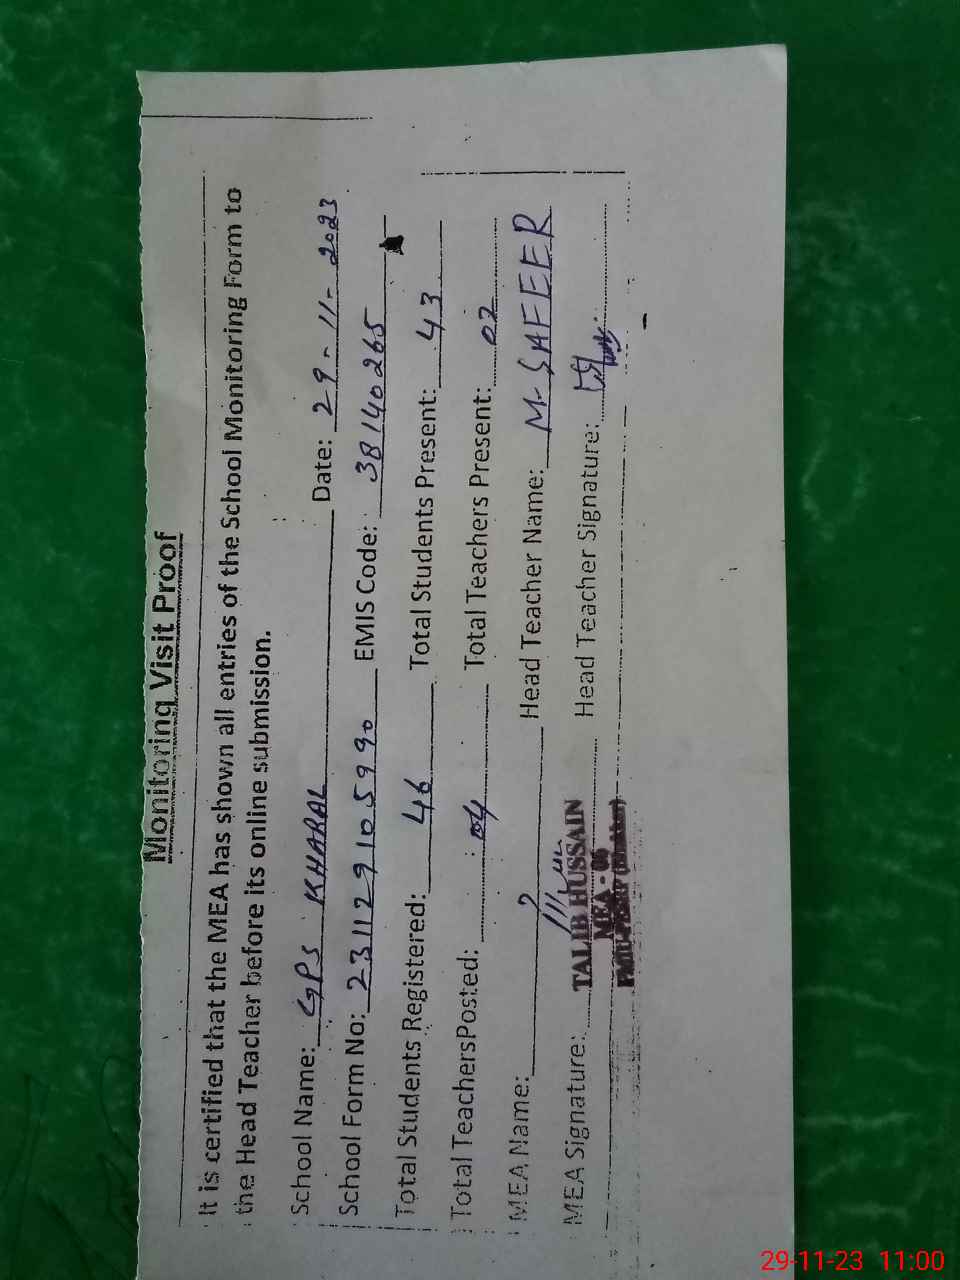 Monitoring Visit Proof
It is certified that the MEA has shown all entries of the School Monitoring Form to
the Head Teacher before its online submission.
School Name: GPS KHARAL Date: 29-11-2023
School Form No: 231129105990 EMIS Code: 38140265
Total Students Registered: 46 Total Students Present: 43
Total TeachersPosted: 04 Total Teachers Present: 02
MEA Name: Head Teacher Name: M-SAFEER
MEA Signature: Head Teacher Signature:
TALIB HUSSAIN
MEA - 06
29-11-23 11:00